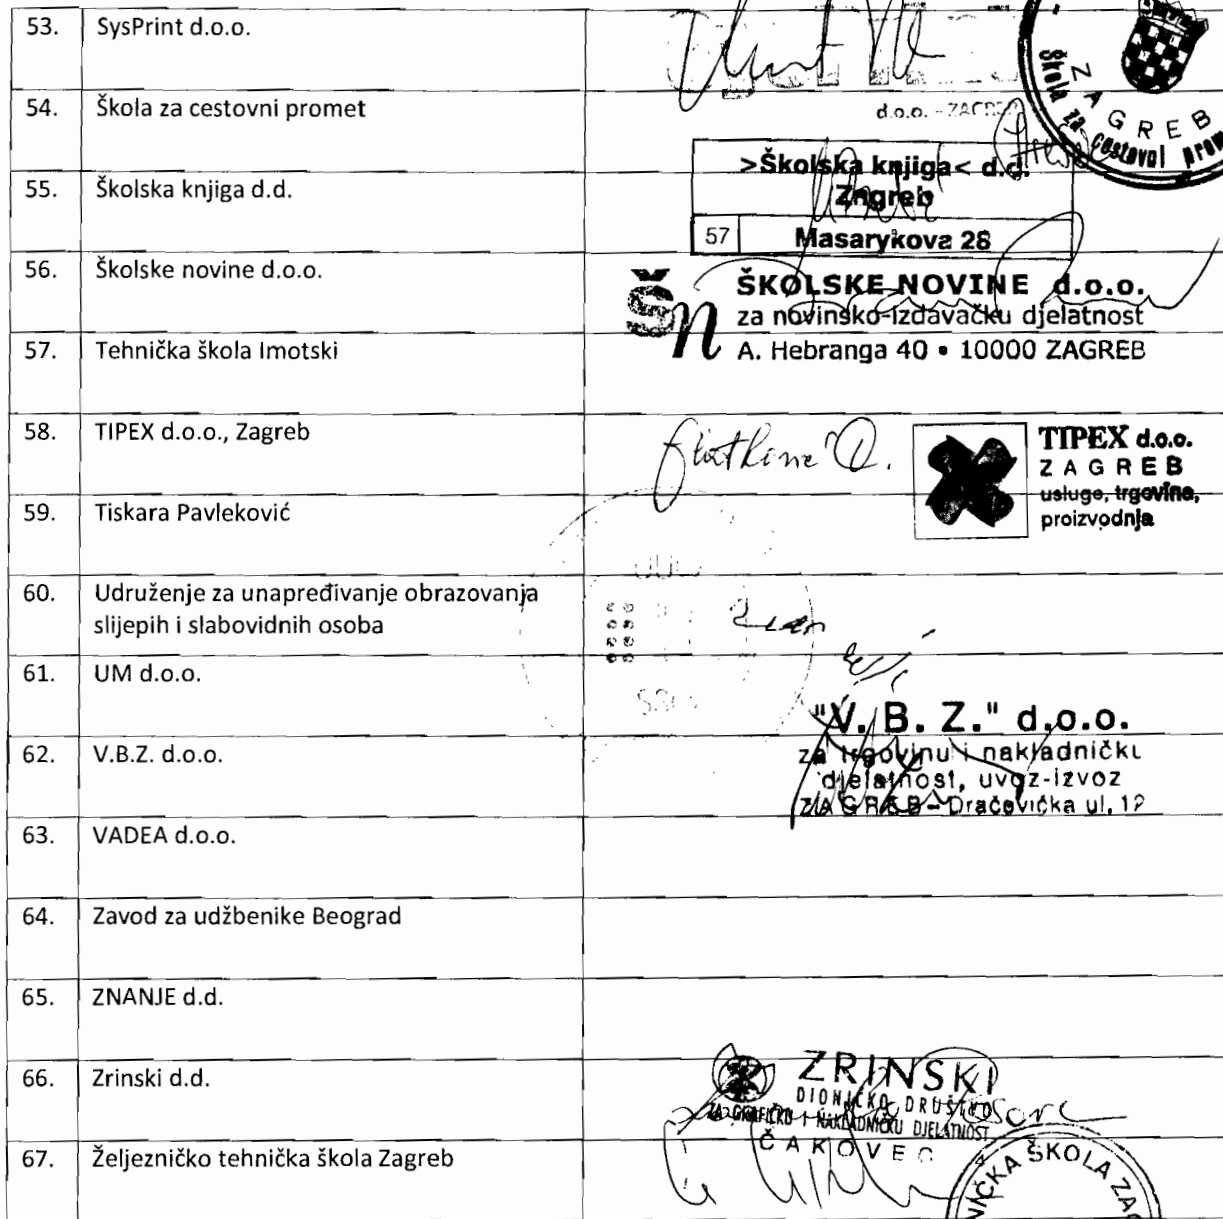 53. SysPrint d.o.o.
d.o.o. - ZAGREB
54. Škola za cestovni promet
ZAGREB
Škola za cestovni
>Školska knjiga< d.d.
Zagreb
57 Masarykova 28
55. Školska knjiga d.d.
56. Školske novine d.o.o.
Šn
ŠKOLSKE NOVINE d.o.o.
za novinsko-izdavačku djelatnost
A. Hebranga 40 • 10000 ZAGREB
57. Tehnička škola Imotski
58. TIPEX d.o.o., Zagreb
TIPEX d.o.o.
ZAGREB
usluge, trgovina,
proizvodnja
59. Tiskara Pavleković
60. Udruženje za unapređivanje obrazovanja
slijepih i slabovidnih osoba
61. UM d.o.o.
"V. B. Z." d.o.o.
za trgovinu i nakladničku
djelatnost, uvoz-izvoz
ZAGREB - Dračevička ul, 12
62. V.B.Z. d.o.o.
63. VADEA d.o.o.
64. Zavod za udžbenike Beograd
65. ZNANJE d.d.
66. Zrinski d.d.
ZRINSKI
DIONIČKO DRUŠTVO
ZA GRAFIČKU I NAKLADNIČKU DJELATNOST
ČAKOVEC
67. Željezničko tehnička škola Zagreb
NIČKA ŠKOLA ZAG